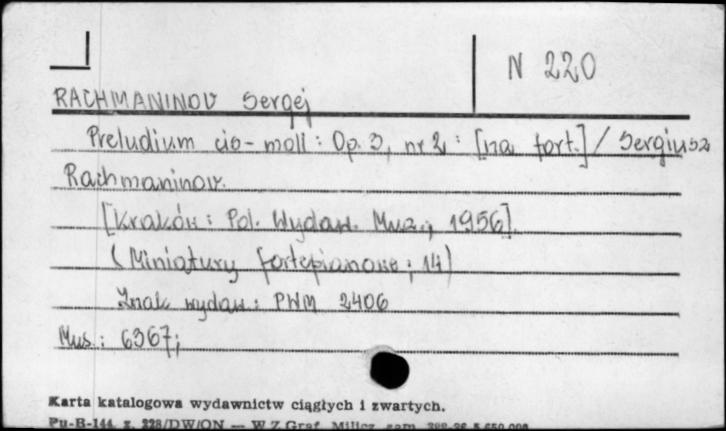 N 220
RACHMANINOV Sergej
Preludium cis-moll : Op. 3, nr 2 : [na fort.] / Sergiusz
Rachmaninow.
[Kraków : Pol. Wydaw. Muz., 1956].
(Miniatury fortepianowe ; 14)
Znak wydaw.: PWM 2406
Mus.: 6367;
Karta katalogowa wydawnictw ciągłych i zwartych.
Pu-B-144, z. 228/DW/ON — W.Z.Graf. Milicz, zam.